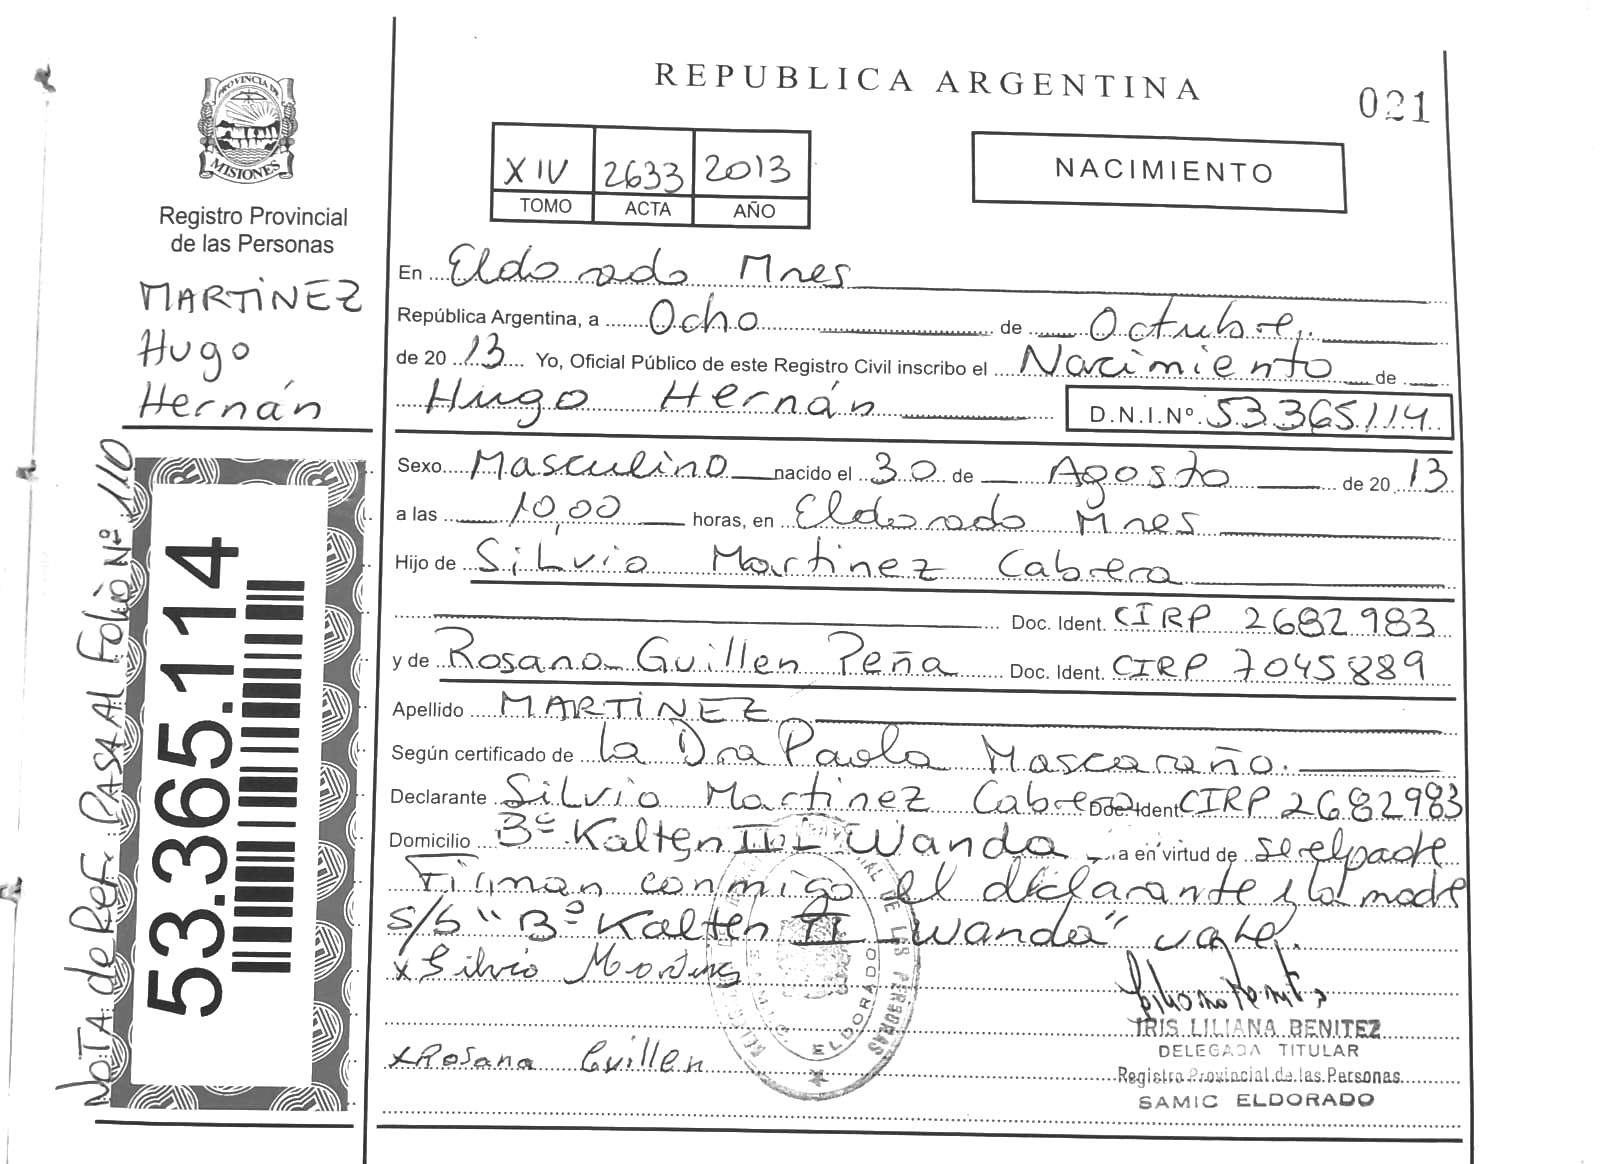 REPUBLICA ARGENTINA
021
PROVINCIA DE
MISIONES
Registro Provincial
de las Personas
MARTINEZ
Hugo
Hernán
XIV 2633 2013
TOMO ACTA AÑO
NACIMIENTO
En Eldorado Mnes
República Argentina, a Ocho de Octubre
de 2013 Yo, Oficial Público de este Registro Civil inscribo el Nacimiento de
Hugo Hernán D.N.I.Nº 53.365.114
Sexo Masculino nacido el 30 de Agosto de 2013
a las 10,00 horas, en Eldorado Mnes
Hijo de Silvio Martinez Cabrera
Doc. Ident. CIRP 2682983
y de Rosana Guillen Peña Doc. Ident. CIRP 7045889
Apellido MARTINEZ
Según certificado de la Dra Paola Mascaraño.
Declarante Silvio Martinez Cabrera Doc. Ident. CIRP 2682983
Domicilio Bº Kalten III Wanda a en virtud de ser el padre
Firman conmigo el declarante y la madre
s/b "Bº Kalten II Wanda" vale.
x Silvio Martinez
x Rosana Guillen
IRIS LILIANA BENITEZ
DELEGADA TITULAR
Registro Provincial de las Personas
SAMIC ELDORADO
DE LAS PERSONAS
ELDORADO
NOTA de Ref. PASA AL Folio Nº 110
53.365.114